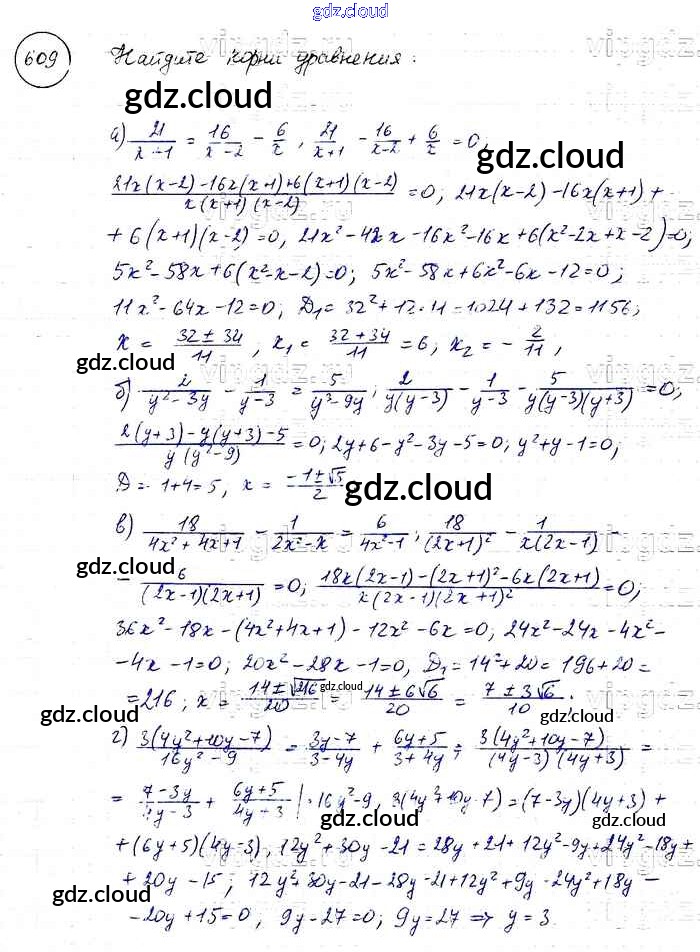 gdz.cloud
609 Найдите корни уравнения:
а) 21/(x+1) = 16/(x-2) - 6/x, 21/(x+1) - 16/(x-2) + 6/x = 0;
(21x(x-2)-16x(x+1)+6(x+1)(x-2))/(x(x+1)(x-2)) = 0; 21x(x-2)-16x(x+1)+
+6(x+1)(x-2)=0, 21x²-42x-16x²-16x+6(x²-2x+x-2)=0;
5x²-58x+6(x²-x-2)=0; 5x²-58x+6x²-6x-12=0;
11x²-64x-12=0; D₁=32²+12·11=1024+132=1156;
x = (32±34)/11, x₁ = (32+34)/11 = 6; x₂ = -2/11,
б) 2/(y²-3y) - 1/(y-3) = 5/(y³-9y); 2/(y(y-3)) - 1/(y-3) - 5/(y(y-3)(y+3)) = 0;
(2(y+3)-y(y+3)-5)/(y(y²-9)) = 0; 2y+6-y²-3y-5=0; y²+y-1=0;
D=1+4=5, x = (-1±√5)/2
в) 18/(4x²+4x+1) - 1/(2x²-x) = 6/(4x²-1); 18/(2x+1)² - 1/(x(2x-1)) -
- 6/((2x-1)(2x+1)) = 0; (18x(2x-1)-(2x+1)²-6x(2x+1))/(x(2x-1)(2x+1)²) = 0;
36x²-18x-(4x²+4x+1)-12x²-6x=0; 24x²-24x-4x²-
-4x-1=0; 20x²-28x-1=0, D₁=14²+20=196+20=
=216; x = (14±√216)/20 = (14±6√6)/20 = (7±3√6)/10.
г) 3(4y²+10y-7)/(16y²-9) = (3y-7)/(3-4y) + (6y+5)/(3+4y); 3(4y²+10y-7)/((4y-3)(4y+3)) =
= (7-3y)/(4y-3) + (6y+5)/(4y+3) |·16y²-9, 3(4y²+10y-7)=(7-3y)(4y+3)+
+(6y+5)(4y-3), 12y²+30y-21=28y+21+12y²-9y+24y²-18y+
+20y-15; 12y²+30y-21-28y-21+12y²+9y-24y²+18y-
-20y+15=0, 9y-27=0; 9y=27 ⇒ y=3